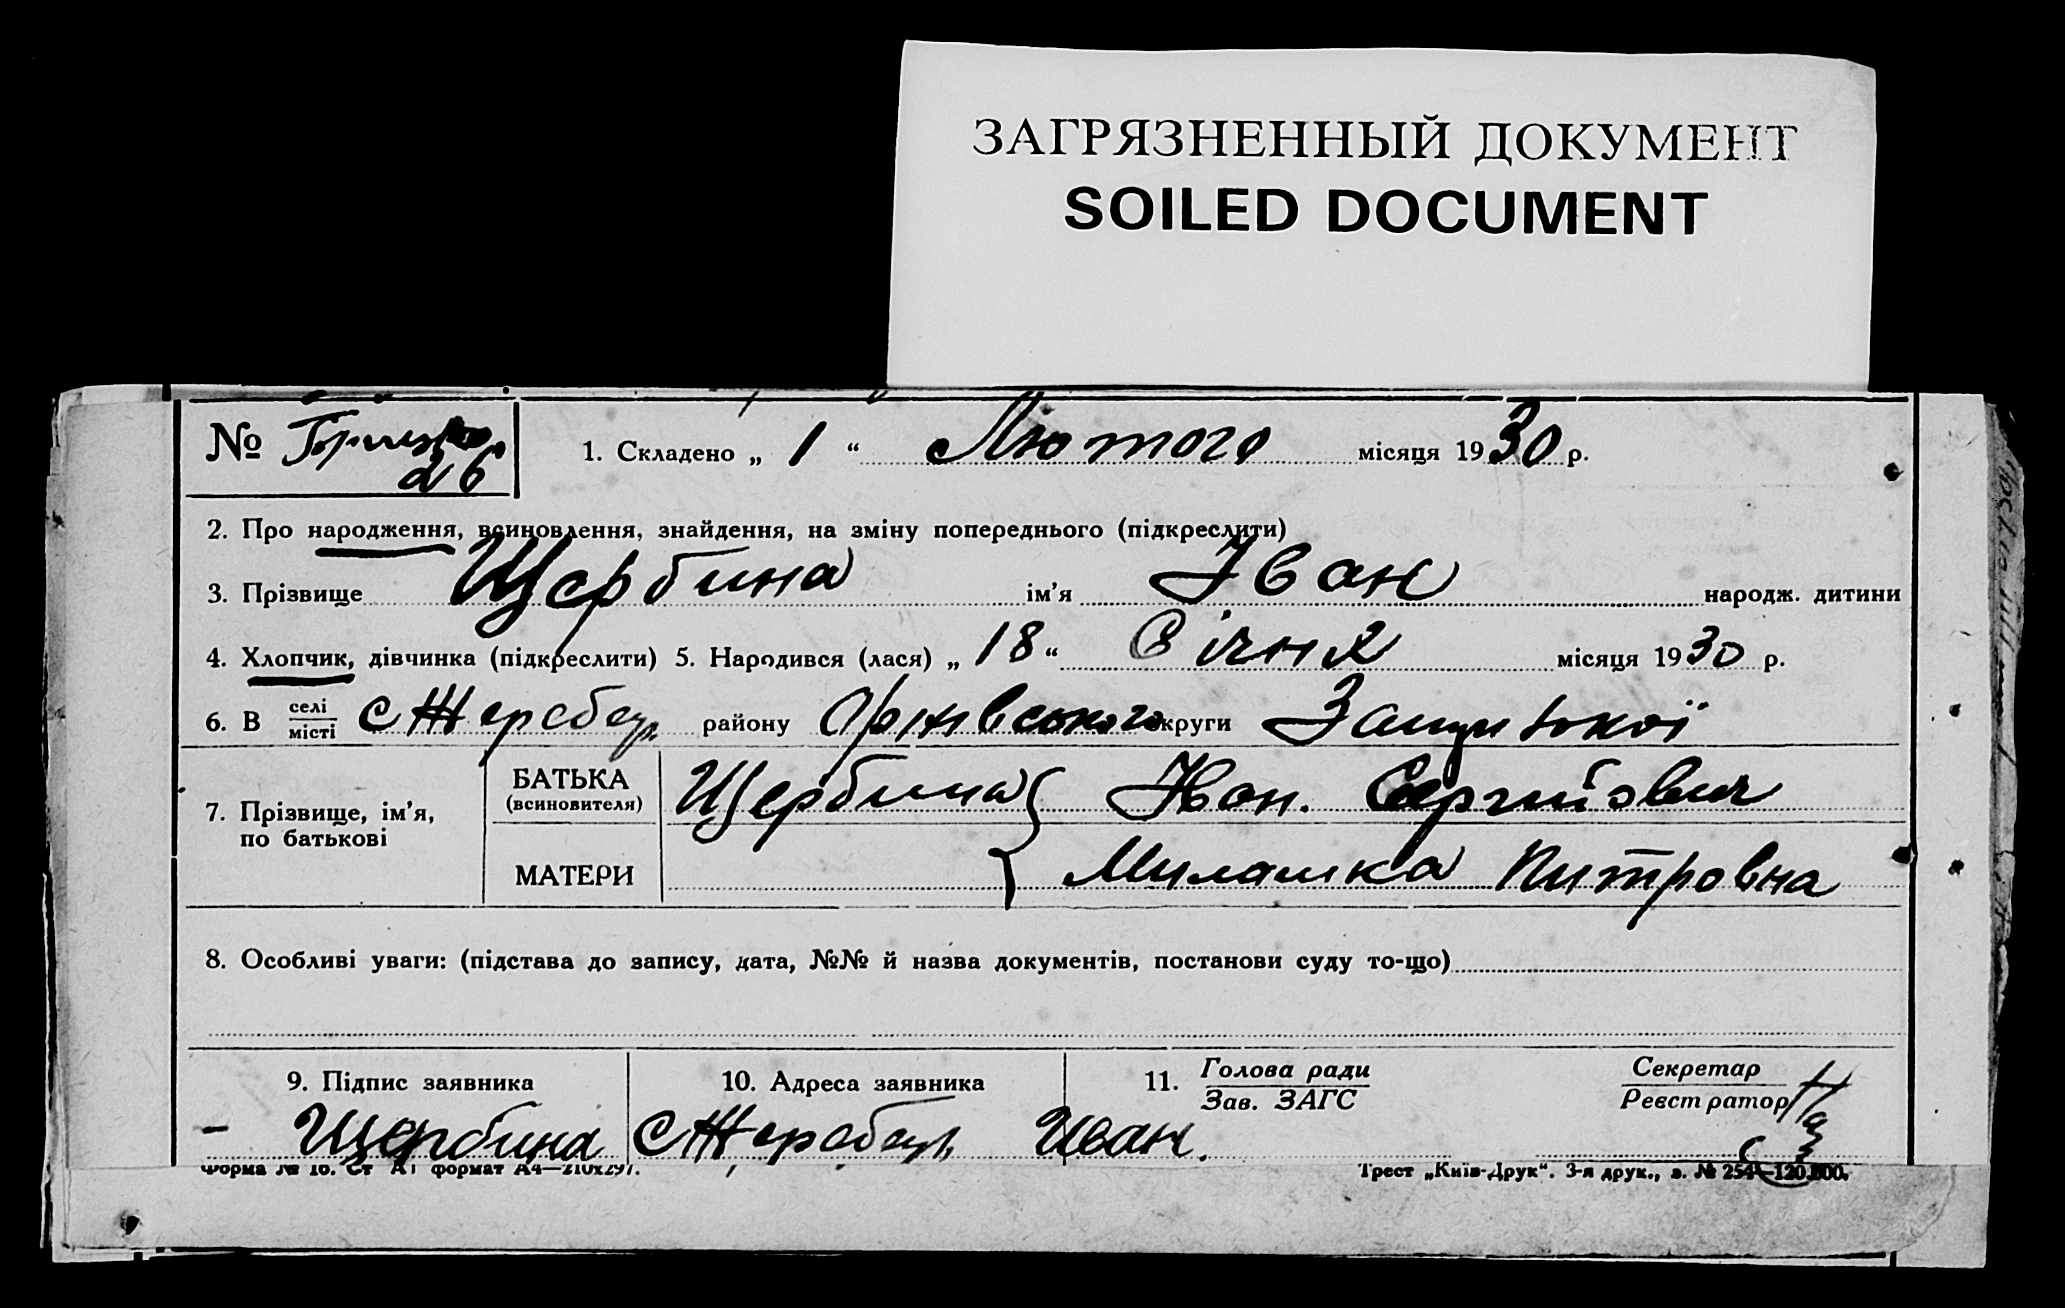 ЗАГРЯЗНЕННЫЙ ДОКУМЕНТ
SOILED DOCUMENT
№ 26
1. Складено „ 1 “ Лютого місяця 1930 р.
2. Про народження, всиновлення, знайдення, на зміну попереднього (підкреслити)
3. Прізвище Щербина ім’я Іван народж. дитини
4. Хлопчик, дівчинка (підкреслити) 5. Народився (лася) „ 18 “ Січня місяця 1930 р.
6. В селі місті С Жеребец. району Оріхівського округи
7. Прізвище, ім’я, по батькові
БАТЬКА (всиновителя) Щербина Іван. Сергійович
МАТЕРИ Милашка Питровна
8. Особливі уваги: (підстава до запису, дата, №№ й назва документів, постанови суду то-що)
9. Підпис заявника 10. Адреса заявника 11. Голова ради Зав. ЗАГС Секретар Реєстратор
Щербина С Жеребец. Иван.
Форма № 16. Ст А1 формат А4—210х297. Трест „Київ-Друк“. 3-я друк., з. № 254—120.000.